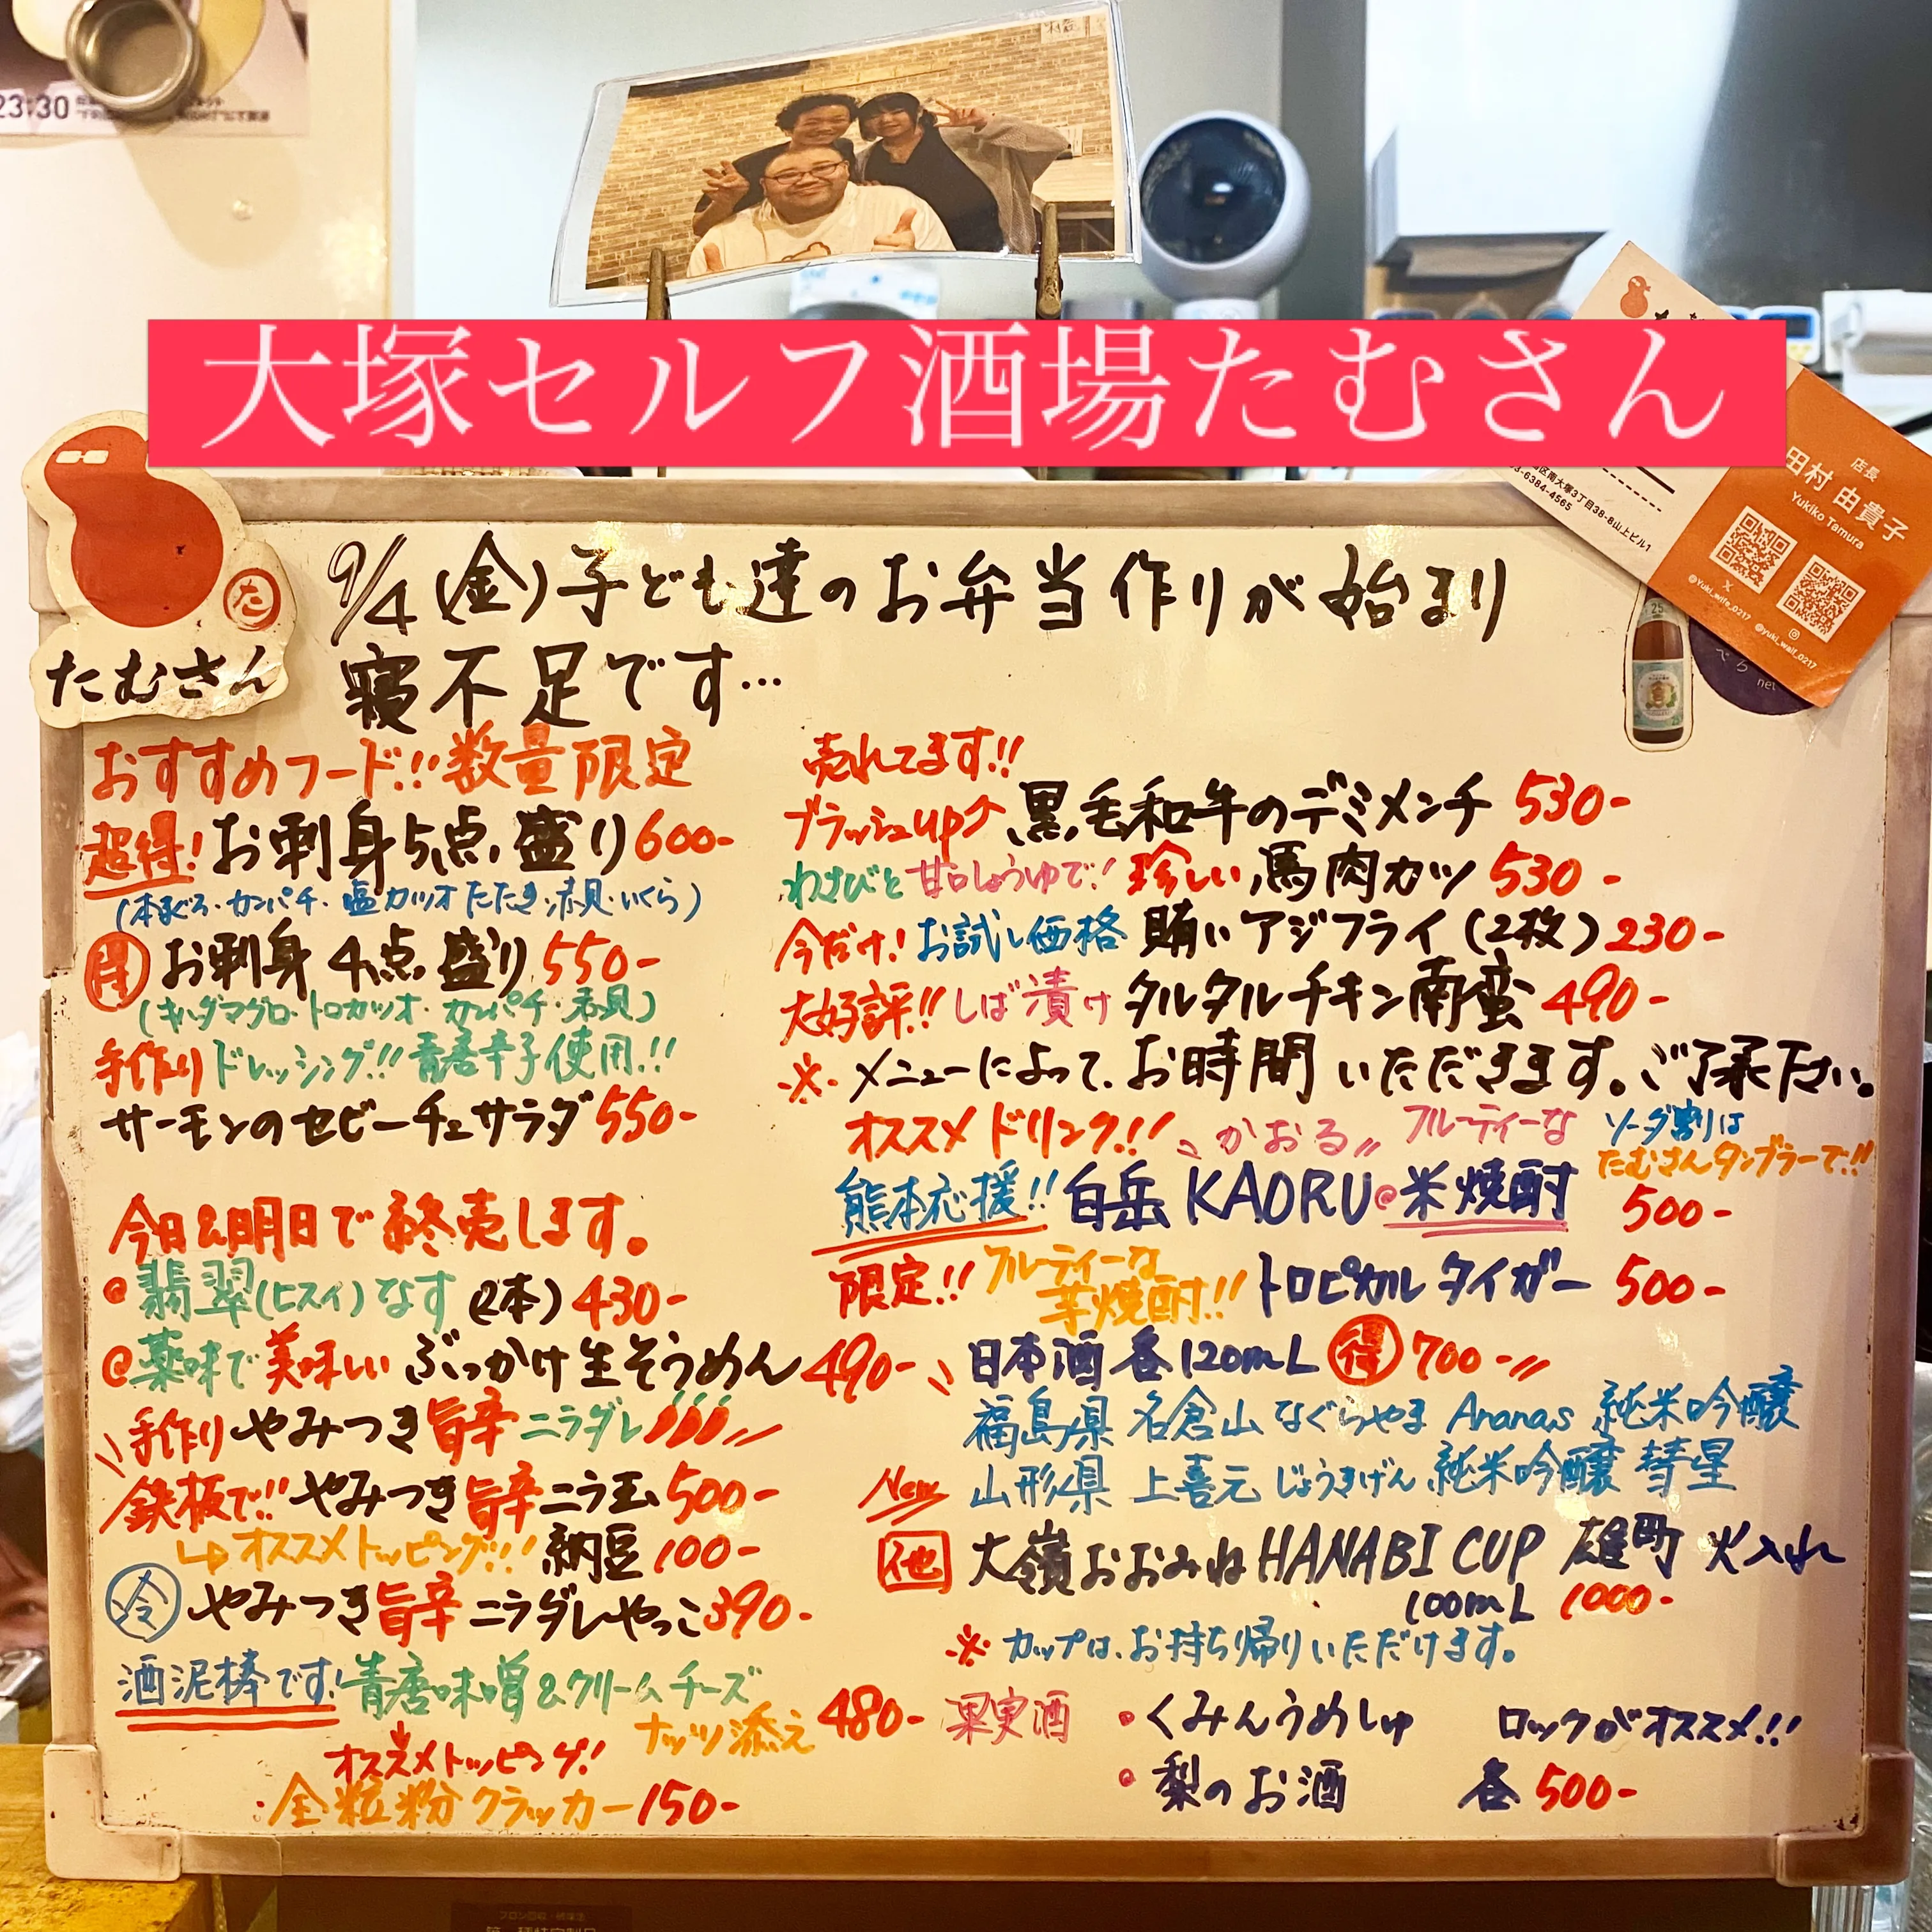 23:30
大塚セルフ酒場たむさん
店長
田村 由貴子
Yukiko Tamura
区南大塚3丁目38-8山上ビル1
03-6384-4565
@Yuki_wife_0217
@yuki_waif_0217
た
たむさん
25
net
9/4(金)子ども達のお弁当作りが始まり
寝不足です…
おすすめフード!!数量限定
超得!お刺身5点盛り600-
(本まぐろ・カンパチ・塩カツオたたき・赤貝・いくら)
得 お刺身4点盛り550-
(キハダマグロ・トロカツオ・カンパチ・赤貝)
手作りドレッシング!!青唐辛子使用!!
サーモンのセビーチェサラダ550-
今日&明日で終売します。
翡翠(ヒスイ)なす(2本)430-
薬味で美味しいぶっかけ生そうめん490-
手作りやみつき旨辛ニラダレ
鉄板で!!やみつき旨辛ニラ玉500-
↳オススメトッピング!!!納豆100-
冷 やみつき旨辛ニラダレやっこ390-
酒泥棒です!青唐味噌&クリームチーズ
ナッツ添え480-
オススメトッピング!
全粒粉クラッカー150-
売れてます!!
ブラッシュup↗黒毛和牛のデミメンチ530-
わさびと甘口しょうゆで!珍しい馬肉カツ530-
今だけ!お試し価格 賄いアジフライ(2枚)230-
大好評!!しば漬けタルタルチキン南蛮490-
※メニューによって、お時間いただきます。ご了承下さい。
オススメドリンク!! かおる フルーティーな ソーダ割りは
たむさんタンブラーで!!
熊本応援!!白岳KAORU 米焼酎 500-
限定!!フルーティーな
芋焼酎!!トロピカルタイガー 500-
日本酒各120mL 得 700-
福島県 名倉山 なぐらやま Ananas 純米吟醸
New 山形県 上喜元 じょうきげん 純米吟醸 彗星
他 大嶺おおみねHANABI CUP 雄町 火入れ
100mL 1000-
※カップは、お持ち帰りいただけます。
果実酒 ・くみんうめしゅ ロックがオススメ!!
・梨のお酒 各500-